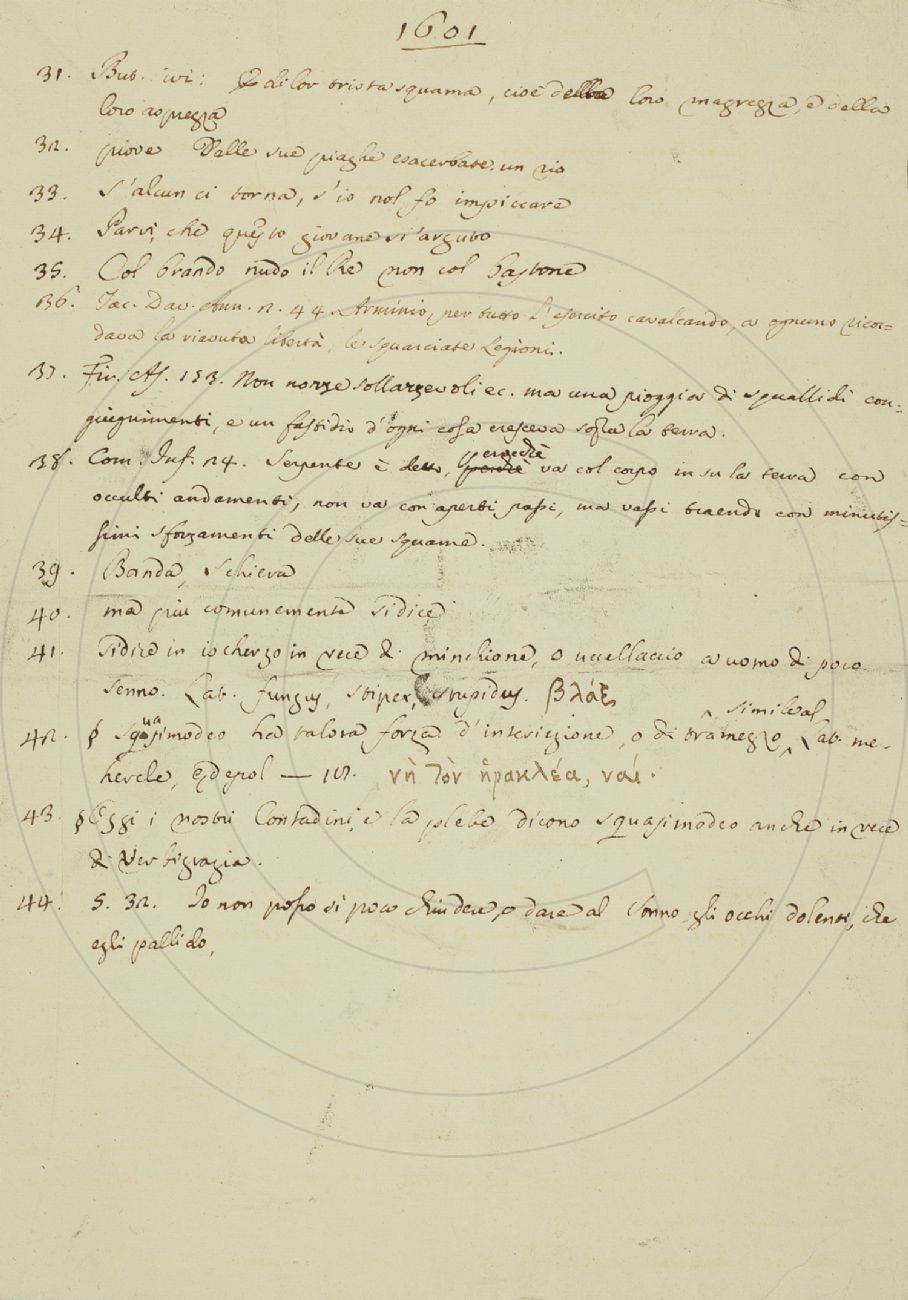 1601
31. But. ivi: E di lor trista squama, cioè della loro magrezza, e della
loro asprezza
32. piove Dalle sue piaghe esacerbate un rio
33. S'alcun ci torna, s'io nol fo impiccare
34. Parvi, che questo giovane si' arguto
35. Col brando nudo il Re non col bastone
36. Tac. Dav. Ann. 2. 44 Arminio, per tutto l'esercito cavalcando, a ognuno ricor=
dava la riavuta libertà, le squarciate Legioni.
37. Fir. As. 153. Non nozze sollazzevoli ec. ma una pioggia di squallidi con=
giugnimenti, e un fastidio d'ogni cosa cresceva sopra la terra.
38. Com. Inf. 24. Serpente è detto, perciocchè va col corpo in su la terra con
occulti andamenti, non va con aperti passi, ma vassi traendo con minutis=
simi sforzamenti delle sue squame.
39. Banda, Schiera
40. ma più comunemente si dice
41. Si dice in ischerzo in vece di minchione, o uccellaccio a uomo di poco
senno. Lat. fungus, stipes, stupidus. βλάξ
42. § Squasimodeo ha talora forza d'interiezione, o di tramezzo simile al Lat. me-
hercle, Edepol — νὴ τὸν ἡρακλέα, ναί.
43. § Oggi i nostri Contadini, e la plebe dicono squasimodeo anche in vece
di Verbigrazia.
44. S. 32. Io non posso si poco chiudere, o dare al Sonno gli occhi dolenti, che
egli pallido,